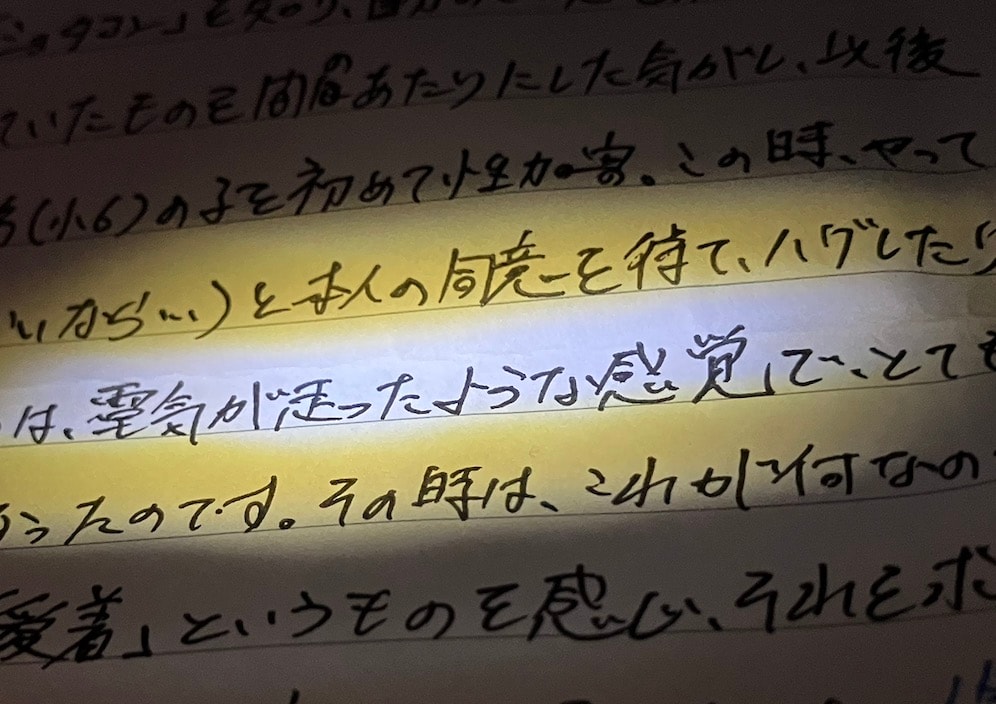 ショタコン」を知り、自分の
ていたものを あたりにした気がし、以後
(小6)の子を初めて性加害。この時、やって
いから…)と本人の同意を得て、ハグしたり
は、電気が走ったような感覚」で、とても
ったのです。その時は、これが何なの
愛着」というものを感じ、それを求